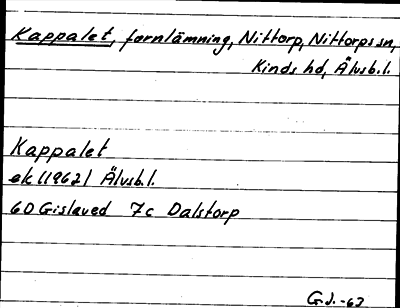 Kappalet, fornlämning, Nittorp, Nittorps sn,
Kinds hd, Älvsb.l.
Kappalet
ek (1962) Älvsb.l.
6D Gislaved 7c Dalstorp
G.J.-63